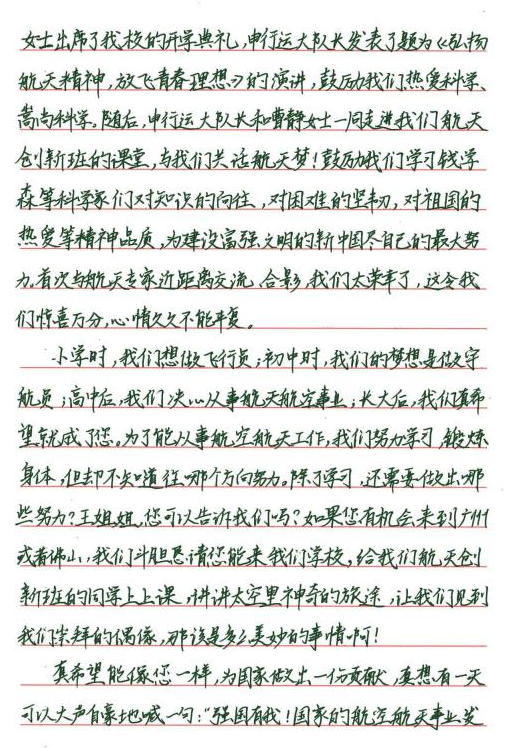 女士出席了我校的开学典礼,申行运大队长发表了题为《弘扬
航天精神,放飞青春理想》的演讲,鼓励我们热爱科学、
崇尚科学。随后,申行运大队长和曹静女士一同走进我们航天
创新班的课堂,与我们共话航天梦!鼓励我们学习钱学
森等科学家们对知识的向往,对困难的坚韧,对祖国的
热爱等精神品质,为建设富强文明的新中国尽自己的最大努
力。首次与航天专家近距离交流、合影,我们太荣幸了,这令我
们惊喜万分,心情久久不能平复。
小学时,我们想做飞行员;初中时,我们的梦想是做宇
航员;高中后,我们决心从事航天航空事业;长大后,我们真希
望就成了您。为了能从事航空航天工作,我们努力学习,锻炼
身体,但却不知道往哪个方向努力。除了学习,还需要做出哪
些努力?王姐姐,您可以告诉我们吗?如果您有机会来到广州
或者佛山,我们斗胆恳请您能来我们学校,给我们航天创
新班的同学上上课,讲讲太空里神奇的旅途,让我们见到
我们崇拜的偶像,那该是多么美妙的事情啊!
真希望能像您一样,为国家做出一份贡献,真想有一天
可以大声自豪地喊一句:“强国有我!国家的航空航天事业发